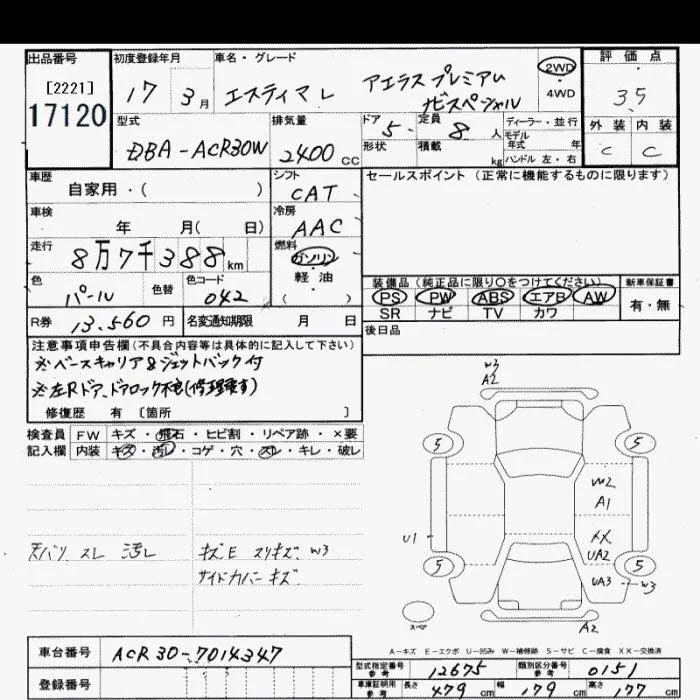 出品番号 初度登録年月 車名・グレード 評価点
[2221] 17 3月 エスティマL アエラスプレミアム 2WD 3.5
17120 ナビスペシャル 4WD
外装 内装
C C
型式 排気量 ドア 定員 ディーラー・並行
DBA-ACR30W 2400 CC 5 8 人 モデル年式 年
形状 積載 kg ハンドル 左・右
車歴 シフト セールスポイント (正常に機能するものに限ります)
自家用・( ) CAT
車検 冷房
年 月( 日) AAC
走行 燃料
8万7千388km ガソリン
軽油
( )
色 色替 色コード
パール 042
装備品(純正品に限り○をつけてください) 新車保証書
PS PW ABS エアB AW 有・無
SR ナビ TV カワ
R券 13,560 円 名変通知期限 月 日
後日品
注意事項申告欄(不具合内容等は具体的に記入して下さい)
※ベースキャリア&ジェットバック付
※左Rドア、ドアロック不良(修理要す)
修復歴 有 [箇所 ]
検査員 FW キズ・飛石・ヒビ割・リペア跡・×要
記入欄 内装 キズ・汚レ・コゲ・穴・スレ・キレ・破レ
W3
A2
5 5
W2
A1
U1 XX
UA2
5 5
UA3 W3
スペア A2
天バリ スレ 汚レ キズE スリキズ W3
サイドカバー キズ
A-キズ E-エクボ U-凹み W-補修跡 S-サビ C-腐食 XX-交換済
車台番号 ACR30-7014347
登録番号
型式指定番号 参考 12675 類別区分番号 参考 0151
車庫証明用 参考 長さ 479 cm 幅 179 cm 高さ 177 cm